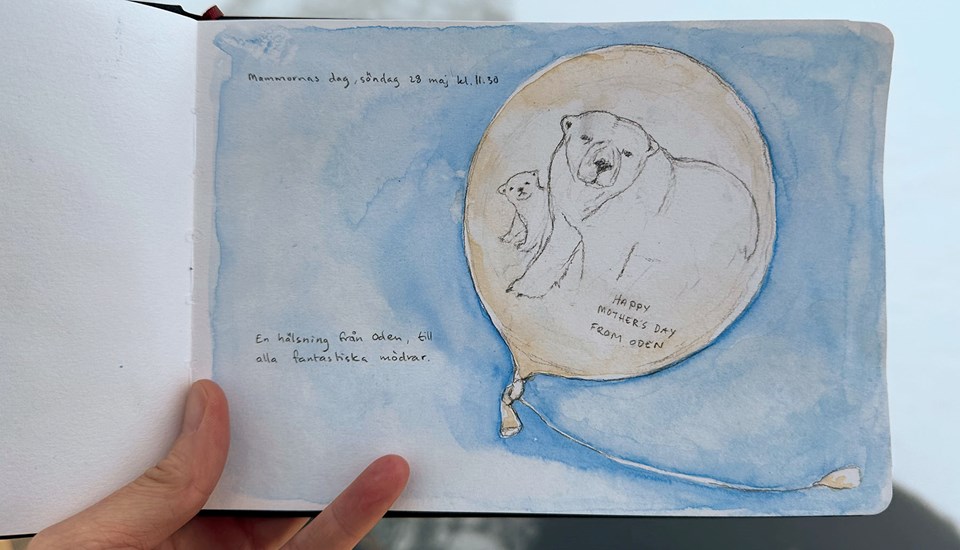 Mammornas dag, söndag 28 maj kl. 11.30
HAPPY
MOTHER'S DAY
FROM ODEN
En hälsning från Oden, till
alla fantastiska mödrar.